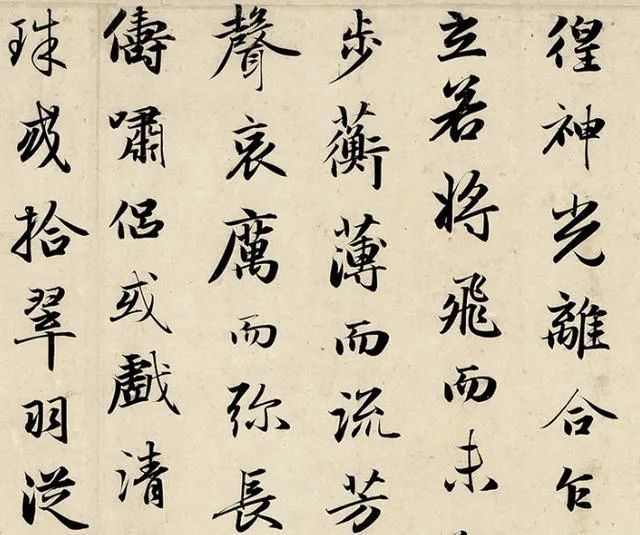 徨神光離合乍
立若将飛而未
步蘅薄而流芳
聲哀厲而弥長
儔嘯侶或戲清
珠或拾翠羽從